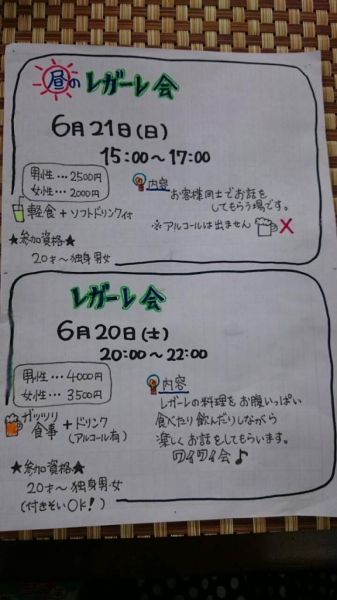 昼の レガーレ会
6月21日(日)
15:00〜17:00
男性…2500円
女性…2000円
軽食+ソフトドリンク付
内容
お客様同士でお話を
してもらう場です。
※アルコールは出ません
★参加資格★
20才〜独身男女
レガーレ会
6月20日(土)
20:00〜22:00
男性…4000円
女性…3500円
ガッツリ
食事+ドリンク
(アルコール有)
内容
レガーレの料理をお腹いっぱい
食べたり飲んだりしながら
楽しくお話をしてもらいます。
ワイワイ会♪
★参加資格★
20才〜独身男女
(付きそいOK!)